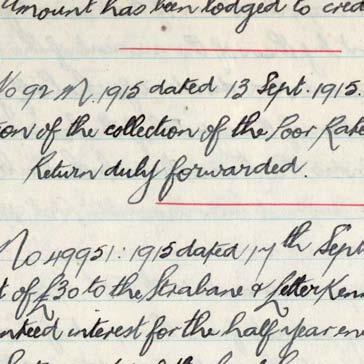 Amount has been lodged to cred
No 92 M. 1915 dated 13 Sept. 1915.
ion of the collection of the Poor Rate
Return duly forwarded.
No 49951: 1915 dated 17th Sept
t of £30 to the Strabane & Letterkenn
nteed interest for the half year en